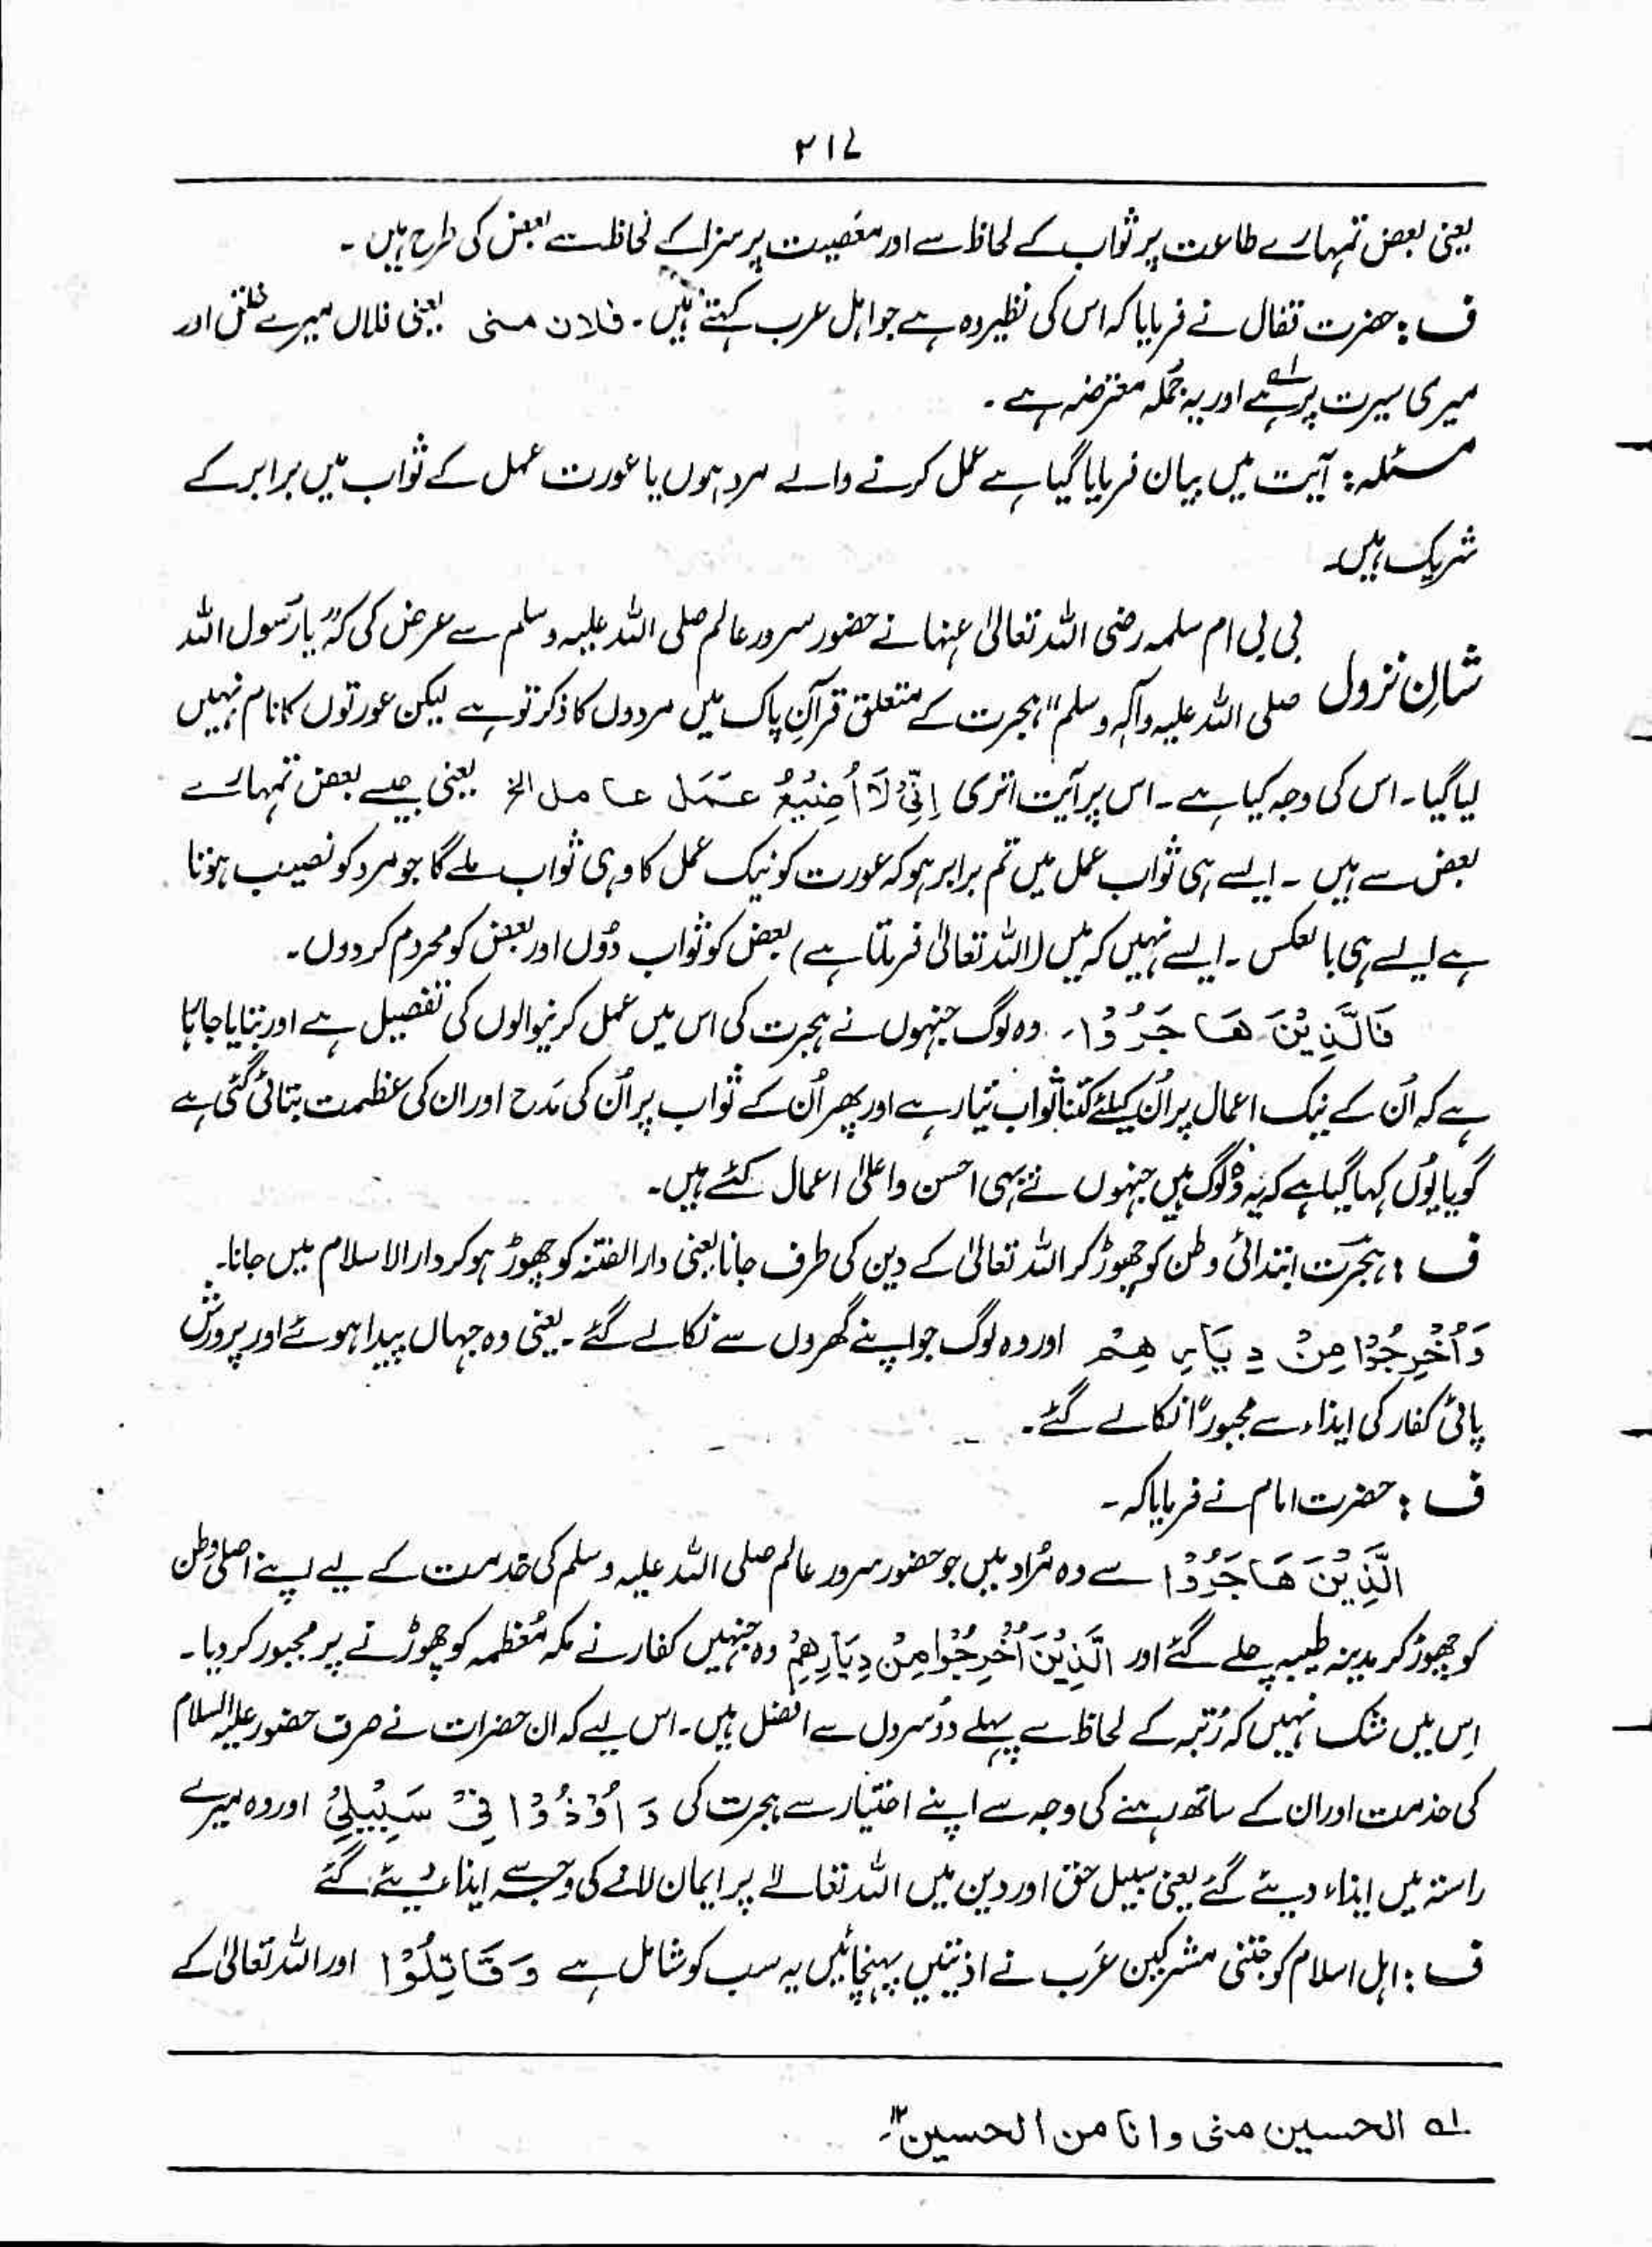 ۲۱۷
یعنی بعض تمہارے طاعت پر ثواب کے لحاظ سے اور معصیت پر سزا کے لحاظ سے بعض کی طرح ہیں ۔
ف : حضرت قفال نے فرمایا کہ اس کی نظیر وہ ہے جو اہل عرب کہتے ہیں ۔ فلان منی یعنی فلاں میرے خلق اور
میری سیرت پر ہے لہ اور یہ جملہ معترضہ ہے ۔
مسئلہ : آیت میں بیان فرمایا گیا ہے عمل کرنے والے مرد ہوں یا عورت عمل کے ثواب میں برابر کے
شریک ہیں۔
شانِ نزول بی بی ام سلمہ رضی اللہ تعالیٰ عنہا نے حضور سرور عالم صلی اللہ علیہ وسلم سے عرض کی کہ "یا رسُول اللہ
صلی اللہ علیہ وآلہ وسلم" ہجرت کے متعلق قرآنِ پاک میں مردوں کا ذکر تو ہے لیکن عورتوں کا نام نہیں
لیا گیا ۔ اس کی وجہ کیا ہے ۔ اس پر آیت اتری اِنِّیْ لَا اُضِیْعُ عَمَلَ عامل الخ یعنی جیسے بعض تمہارے
بعض سے ہیں ۔ ایسے ہی ثواب عمل میں تم برابر ہو کہ عورت کو نیک عمل کا وہی ثواب ملے گا جو مرد کو نصیب ہوتا
ہے ایسے ہی بالعکس ۔ ایسے نہیں کہ میں (اللہ تعالیٰ فرماتا ہے) بعض کو ثواب دُوں اور بعض کو محروم کر دوں ۔
فَالَّذِیْنَ ھَاجَرُوْا ۔ وہ لوگ جنہوں نے ہجرت کی اس میں عمل کرنیوالوں کی تفصیل ہے اور بتایا جاتا
ہے کہ اُن کے نیک اعمال پر اُن کیلئے کتنا ثواب تیار ہے اور پھر اُن کے ثواب پر اُن کی مَدح اور ان کی عظمت بتائی گئی ہے
گویا یُوں کہا گیا ہے کہ یہ وُہ لوگ ہیں جنہوں نے یہی احسن و اعلیٰ اعمال کئے ہیں۔
ف : ہجرَت ابتدائی وطن کو چھوڑ کر اللہ تعالیٰ کے دین کی طرف جانا یعنی دار الفتنہ کو چھوڑ ہو کر دار الاسلام میں جانا۔
وَاُخْرِجُوْا مِنْ دِیَارِھِمْ اور وہ لوگ جو اپنے گھروں سے نکالے گئے ۔ یعنی وہ جہاں پیدا ہوئے اور پرورش
پائی کفار کی ایذاء سے مجبورًا نکالے گئے ۔
ف : حضرت امام نے فرمایا کہ ۔
الَّذِیْنَ ھَاجَرُوْا سے وہ مُراد ہیں جو حضور سرور عالم صلی اللہ علیہ وسلم کی خدمت کے لیے اپنے اصلی وطن
کو چھوڑ کر مدینہ طیبہ چلے گئے اور الَّذِیْنَ اُخْرِجُوْا مِنْ دِیَارِھِمْ وہ جنہیں کفار نے مکہ مُعظمہ کو چھوڑنے پر مجبور کر دیا ۔
اِس میں شک نہیں کہ رُتبہ کے لحاظ سے پہلے دوُسروں سے افضل ہیں ۔ اس لیے کہ ان حضرات نے صرف حضور علیہ السلام
کی خدمت اور ان کے ساتھ رہنے کی وجہ سے اپنے اختیار سے ہجرت کی وَ اُوْذُوْا فِیْ سَبِیْلِیْ اور وہ میرے
راستہ میں ایذاء دیئے گئے یعنی سبیل حق اور دین میں اللہ تعالےٰ پر ایمان لانے کی وجہ سے ایذاء دیئے گئے
ف : اہل اسلام کو جتنی مشرکین عَرب نے اذیتیں پہنچائیں یہ سب کو شامل ہے وَ قَاتَلُوْا اور اللہ تعالیٰ کے
لہ الحسین منی وانا من الحسین ۱۲۔